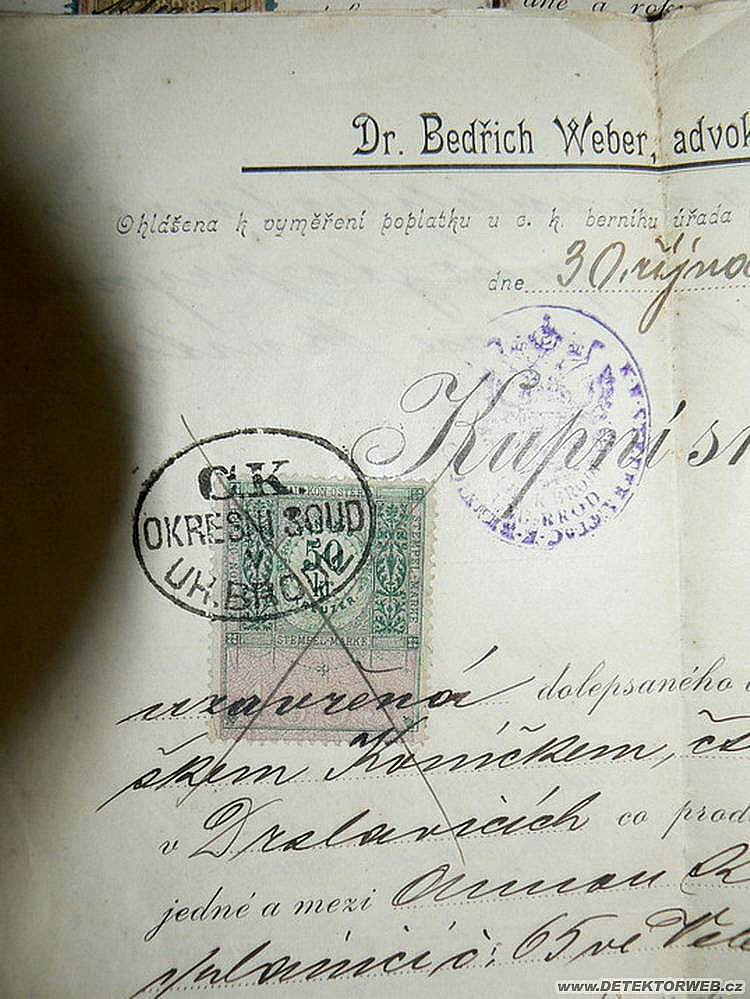 dne a rok
Dr. Bedřich Weber, advok
Ohlášena k vyměření poplatku u c. k. berního úřadu
dne 30. října
Kupní s
C.K.
OKRESNÍ SOUD
V
UH. BRODĚ
50
kr
STEMPEL-MARKE
STEMPEL-MARKE
BROD
uzavřená dolepsaného
škem Koníčkem, čí
v Drslavicích co prod
jedné a mezi Annou K
č. 65 ve Vel
www.DETEKTORWEB.cz